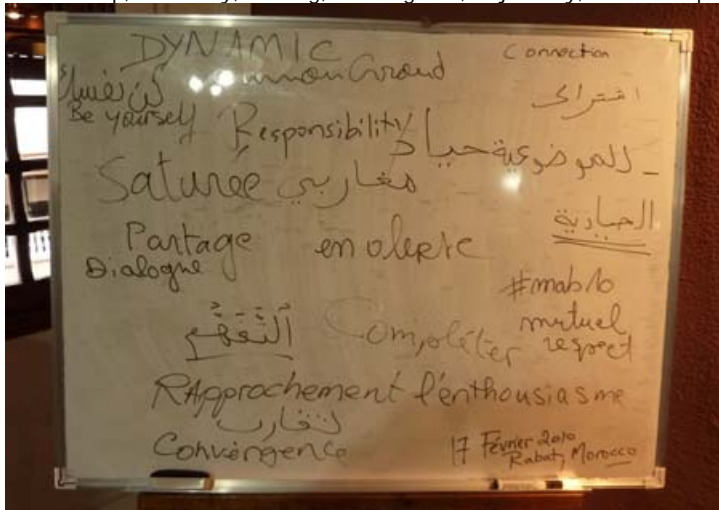 DYNAMIC
Connection
Common Ground
كن نفسك
Be yourself
اشتراك
Responsibility
حياد
_ الموضوعية
Saturée
مغاربي
الحيادية
Partage
en alerte
Dialogue
#mab10
mutuel respect
التَّفَهُّم
Compléter
RApprochement
l'enthousiasme
تقارب
Convergence
17 Février 2010
Rabat, Morocco